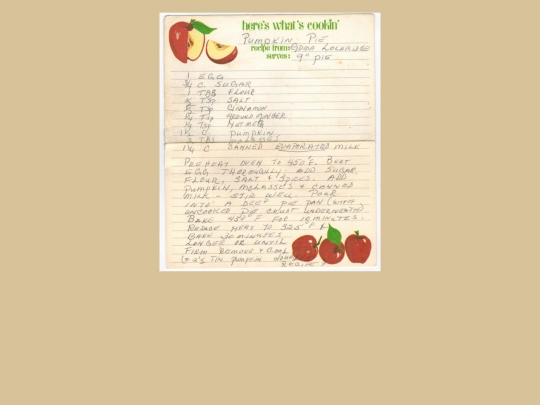 here's what's cookin'
PUMPKIN PIE
recipe from: EDNA
serves: 9" PIE
1 EGG
3/4 C. SUGAR
1 TBS FLOUR
TSP SALT
TSP CINNAMON
TSP POWDER
TSP NUTMEG
C. PUMPKIN
TBS MOLASSES
C CANNED EVAPORATED MILK
PREHEAT OVEN TO 450°F. BEAT
EGG THOROUGHLY ADD SUGAR
FLOUR, SALT & SPICES. ADD
PUMPKIN, MOLASSES & CANNED
MILK - STIR WELL. POUR
INTO A DEEP PIE PAN (WITH
UNCOOKED PIE CRUST UNDERNEATH)
BAKE 450°F FOR 10 MINUTES.
REDUCE HEAT TO 325°F &
BAKE 30 MINUTES
LONGER OR UNTIL
FIRM REMOVE & COOL
TIN PUMPKIN MAKES
RECIPE